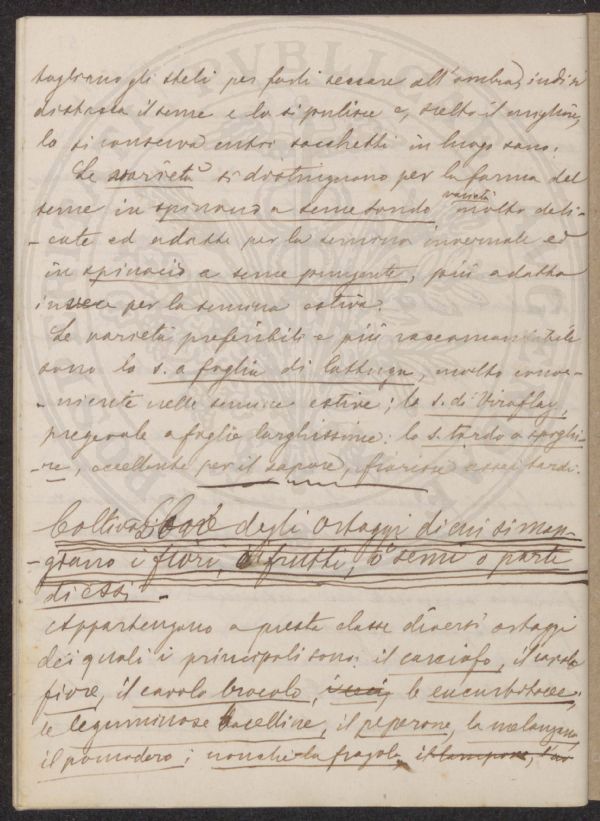 tagliano gli steli per farli seccare all'ombra, indi si
distacca il seme e lo si pulisce e, scelto il migliore,
lo si conserva entro sacchetti in luogo sano.
Le varietà si distinguono per la forma del
seme in spinacio a seme tondo varietà molto deli-
-cate ed adatte per la semina invernale ed
in spinacio a seme pungente, più adatta
invece per la semina estiva.
Le varietà preferibili e più raccomandabili
sono lo s. a foglia di lattuga, molto conve-
-niente nelle semine estive; lo s. di Viroflay,
pregevole a foglie larghissime: lo s. tardo a spighi-
-re, eccellente per il sapore, fiorisce assai tardi.
Coltivazione degli ortaggi di cui si man-
-giano i fiori, i frutti, o semi o parte
di essi.-
Appartengono a questa classe diversi ortaggi
dei quali i principali sono: il carciofo, il cavolo
fiore, il cavolo brocolo, le cucurbitacee;
le leguminose bacelline, il peperone, la melanzana
il pomodoro; nonchè la fragola, il lampone,